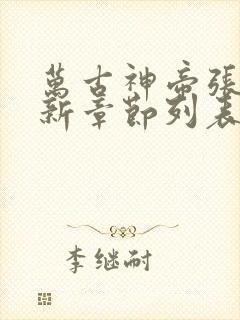 萬古神帝張
新章節列表
李继耐